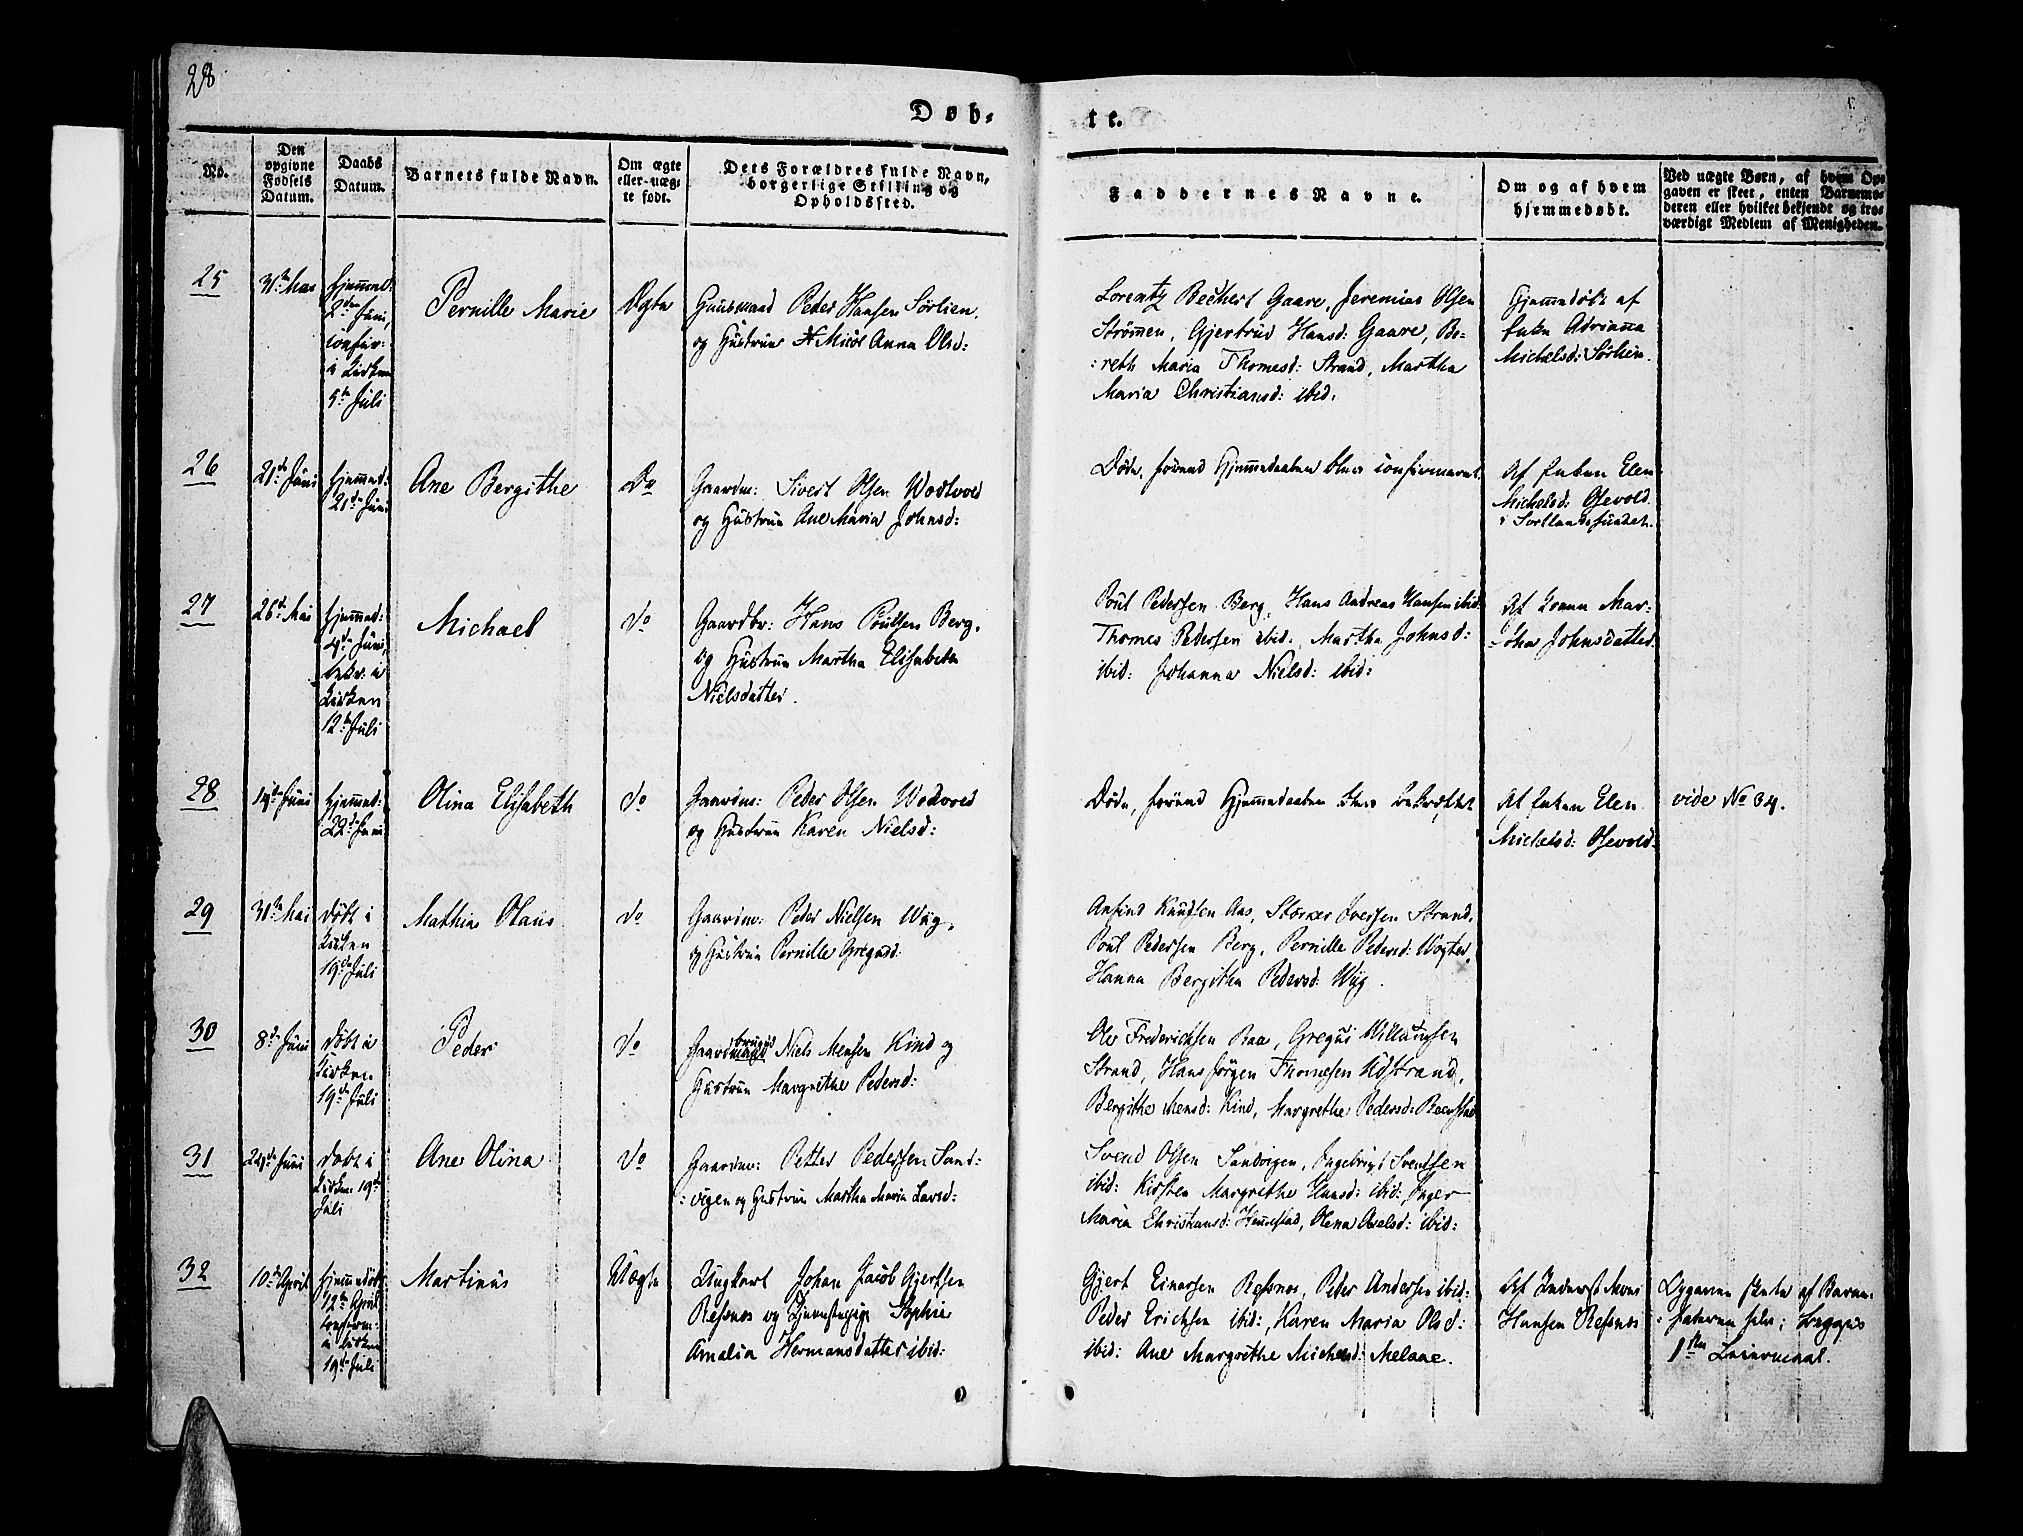 28
Døb-
te.
No.
Den
opgivne
Fødsels
Datum.
Daabs
Datum.
Barnets fulde Navn.
Om ægte
eller uæg-
te født.
Dets Forældres fulde Navn,
borgerlige Stilling og
Opholdssted.
Faddernes Navne.
Om og af hvem
hjemmedøbt.
Ved uægte Børn, af hvem Op-
gaven er skeet, enten Barnemo-
deren eller hvilket bekjendt og tro-
værdigt Medlem af Menigheden.
25
31te Mai
hjemmed:
2den Juni,
confir:
i Kirken
5te Juli
Pernille Marie
Ægte
Huusmand Peder Hansen Sörlien
og Hustrue Anna Olsd:
Lorentz Bechert Gaare, Jeremias Olsen
Strömen, Gjertrud Hansd: Gaare, Be-
:reth Maria Thomesd: Strand, Martha
Maria Christiansd: ibid:
Hjemmedøbt af
Enken Adrianna
Michelsd: Sörlien.
26
21de Juni
hjemmed:
21de Juni
Ane Bergithe
Do
Gaardm: Sivert Olsen Wodvod
og Hustrue Ane Maria Johnsd:
Døde, førend Hjemmedaaben blev confirmeret.
Af Enken Elen
Michelsd: Osevold
i Sortlandssundet.
27
26de Mai
hjemmed:
4de Juni,
bekr: i
Kirken
12te Juli
Michael
do
Gaardbr: Hans Poulsen Berg.
og Hustrue Martha Elisabeth
Nielsdatter.
Poul Pedersen Berg, Hans Andreas Hansen ibid
Thomes Pedersen ibid, Martha Johnsd:
ibid: Johanna Nielsd: ibid:
Af Konen Mar-
-tha Johnsdatter
28
14de Juni
hjemmed:
22de Juni
Olina Elisabeth
do
Gaardm: Peder Olsen Wodvod
og Hustrue Karen Nielsd:
Døde, førend Hjemmedaaben blev bekræftet
Af Enken Elen
Michelsd: Osevold:
vide No 34.
29
31te Mai
døbt i
Kirken
19de Juli
Mathias Olaus
do
Gaardm: Peder Nielsen Wiig,
og Hustrue Pernille Gregusd:
Anfind Knudsen Aas, Störker Iversen Strand,
Poul Pedersen Berg, Pernille Pedersd: Wogter,
Hanna Bergitha Pedersd: Wiig.
30
8de Juni
døbt i
Kirken
19de Juli
Peder
do
Niels Mensen Kind og
Hustrue Margrethe Pedersd:
Ole Frederichsen Raa, Gregus Willumsen
Strand, Hans Jörgen Thomesen Kidstrand,
Bergithe Mensd: Kind, Margrethe Pedersd:
31
24de Juni
døbt i
Kirken 19de
Juli
Ane Olina
do
Gaardm: Petter Pedersen Sand:
:vigen og Hustrue Martha Maria Larsd:
Svend Olsen Sandvigen, Ingebrigt Svendsen
ibid: Kirsten Margrethe Hansd: ibid: Inger
Maria Christiansd: Hennestad, Olena Axelsd: ibid:
32
10de April
hjemmedøbt
12te April
confirm:
i Kirken
19de Juli
Martinus
Uægte
Ungkarl Johan Jacob Gjertsen
Refsnes og Sophie
Amalia Hermansdatter ibid:
Gjert Einersen Refsnes, Peder Andersen ibid:
Peder Erichsen ibid:, Karen Maria Olsd:
ibid: Ane Margrethe Michelsd: Melaae.
Hansen Refsnes
Opgaven skeete af Barne-
:faderen selv; begges
1ste Leiermaal.